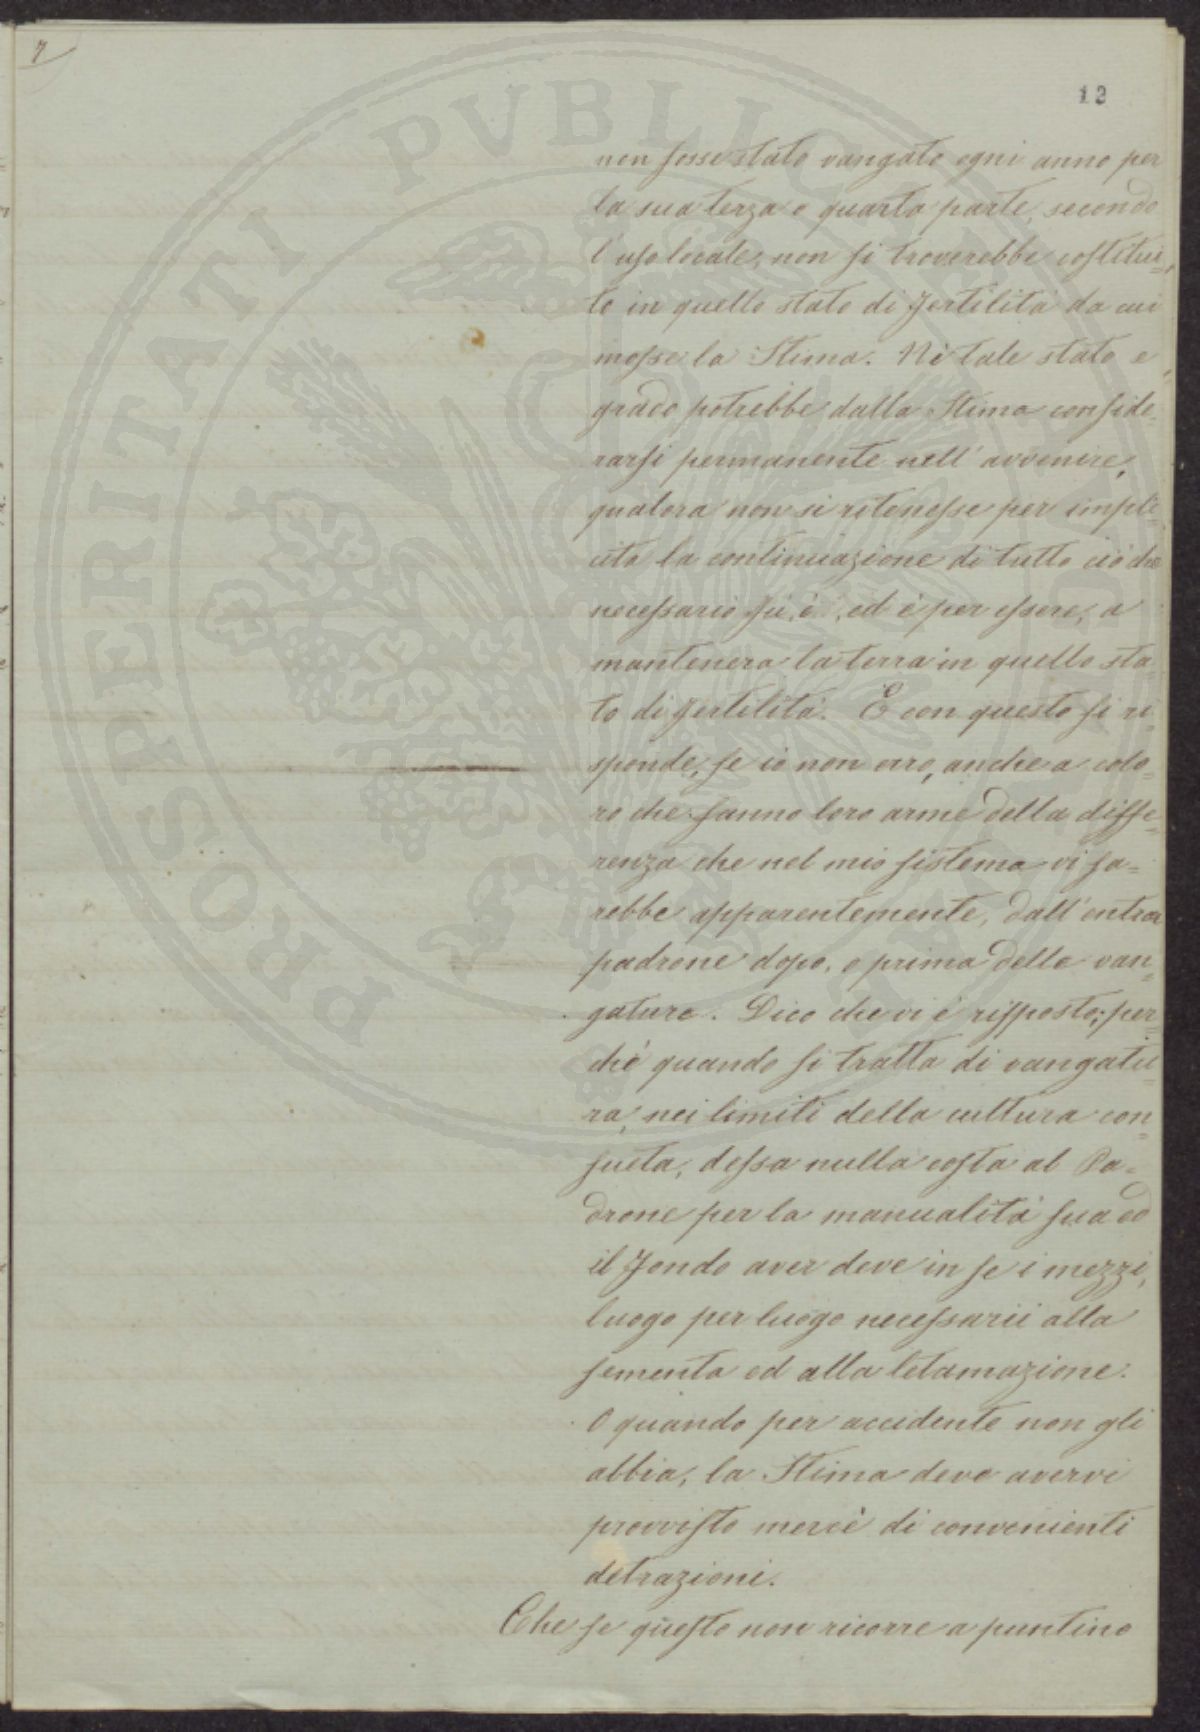 7
12
non fosse stato vangato ogni anno per
la sua terza o quarta parte, secondo
l'uso locale, non si troverebbe costitui=
to in quello stato di fertilità da cui
mosse la Stima. Nè tale stato e
grado potrebbe dalla Stima conside=
rarsi permanente nell'avvenire,
qualora non si ritenesse per impli=
cita la continuazione di tutto ciò che
necessario fù, è, ed è per essere, a
mantenere la terra in quello sta=
to di fertilità. E con questo si ri=
sponde, se io non erro, anche a colo=
ro che fanno loro arme della diffe=
renza che nel mio sistema vi sa=
rebbe apparentemente, dall'entrar
padrone dopo, o prima delle van=
gature. Dico che vi è risposto; per=
chè quando si tratta di vangatu=
ra, nei limiti della cultura con=
sueta, dessa nulla costa al Pa=
drone per la manualità sua ed
il fondo aver deve in se i mezzi,
luogo per luogo necessarii alla
sementa ed alla letamazione.
O quando per accidente non gli
abbia, la Stima deve avervi
provvisto mercè di convenienti
detrazioni.
Che se questo non ricorre a puntino
PROSPERITATI PVBLICAE